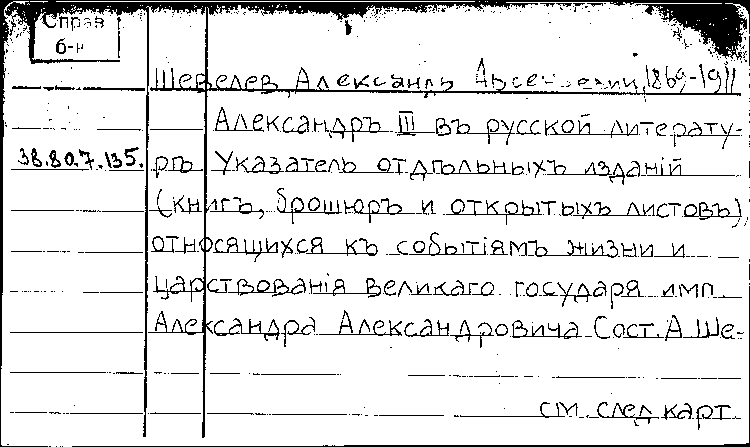 Справ
б-н
Шевелев, Александръ Арсеньевич, 1869-1911
Александръ III въ русской литерату-
38.80.7.135.
рѣ Указатель отдѣльныхъ изданій
(книгъ, брошюръ и открытыхъ листовъ),
относящихся къ событіямъ жизни и
царствованія великаго государя имп.
Александра Александровича Сост. А Ше-
см. след карт